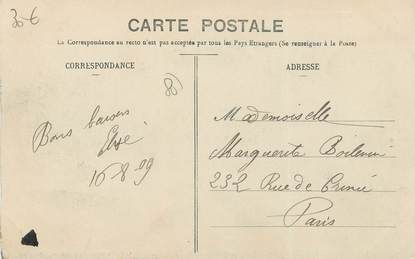 30 €
CARTE POSTALE
La Correspondance au recto n'est pas acceptée par tous les Pays Étrangers (Se renseigner à la Poste)
CORRESPONDANCE
ADRESSE
(80)
Bons baisers
Mademoiselle
Marguerite
232 Rue de
Paris